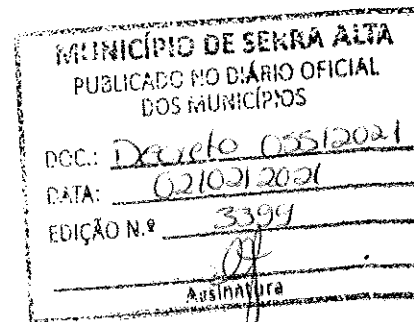 MUNICÍPIO DE SERRA ALTA
PUBLICADO NO DIÁRIO OFICIAL
DOS MUNICÍPIOS
DOC.: Decreto 055/2021
DATA: 02/02/2021
EDIÇÃO N.º 3399
Assinatura